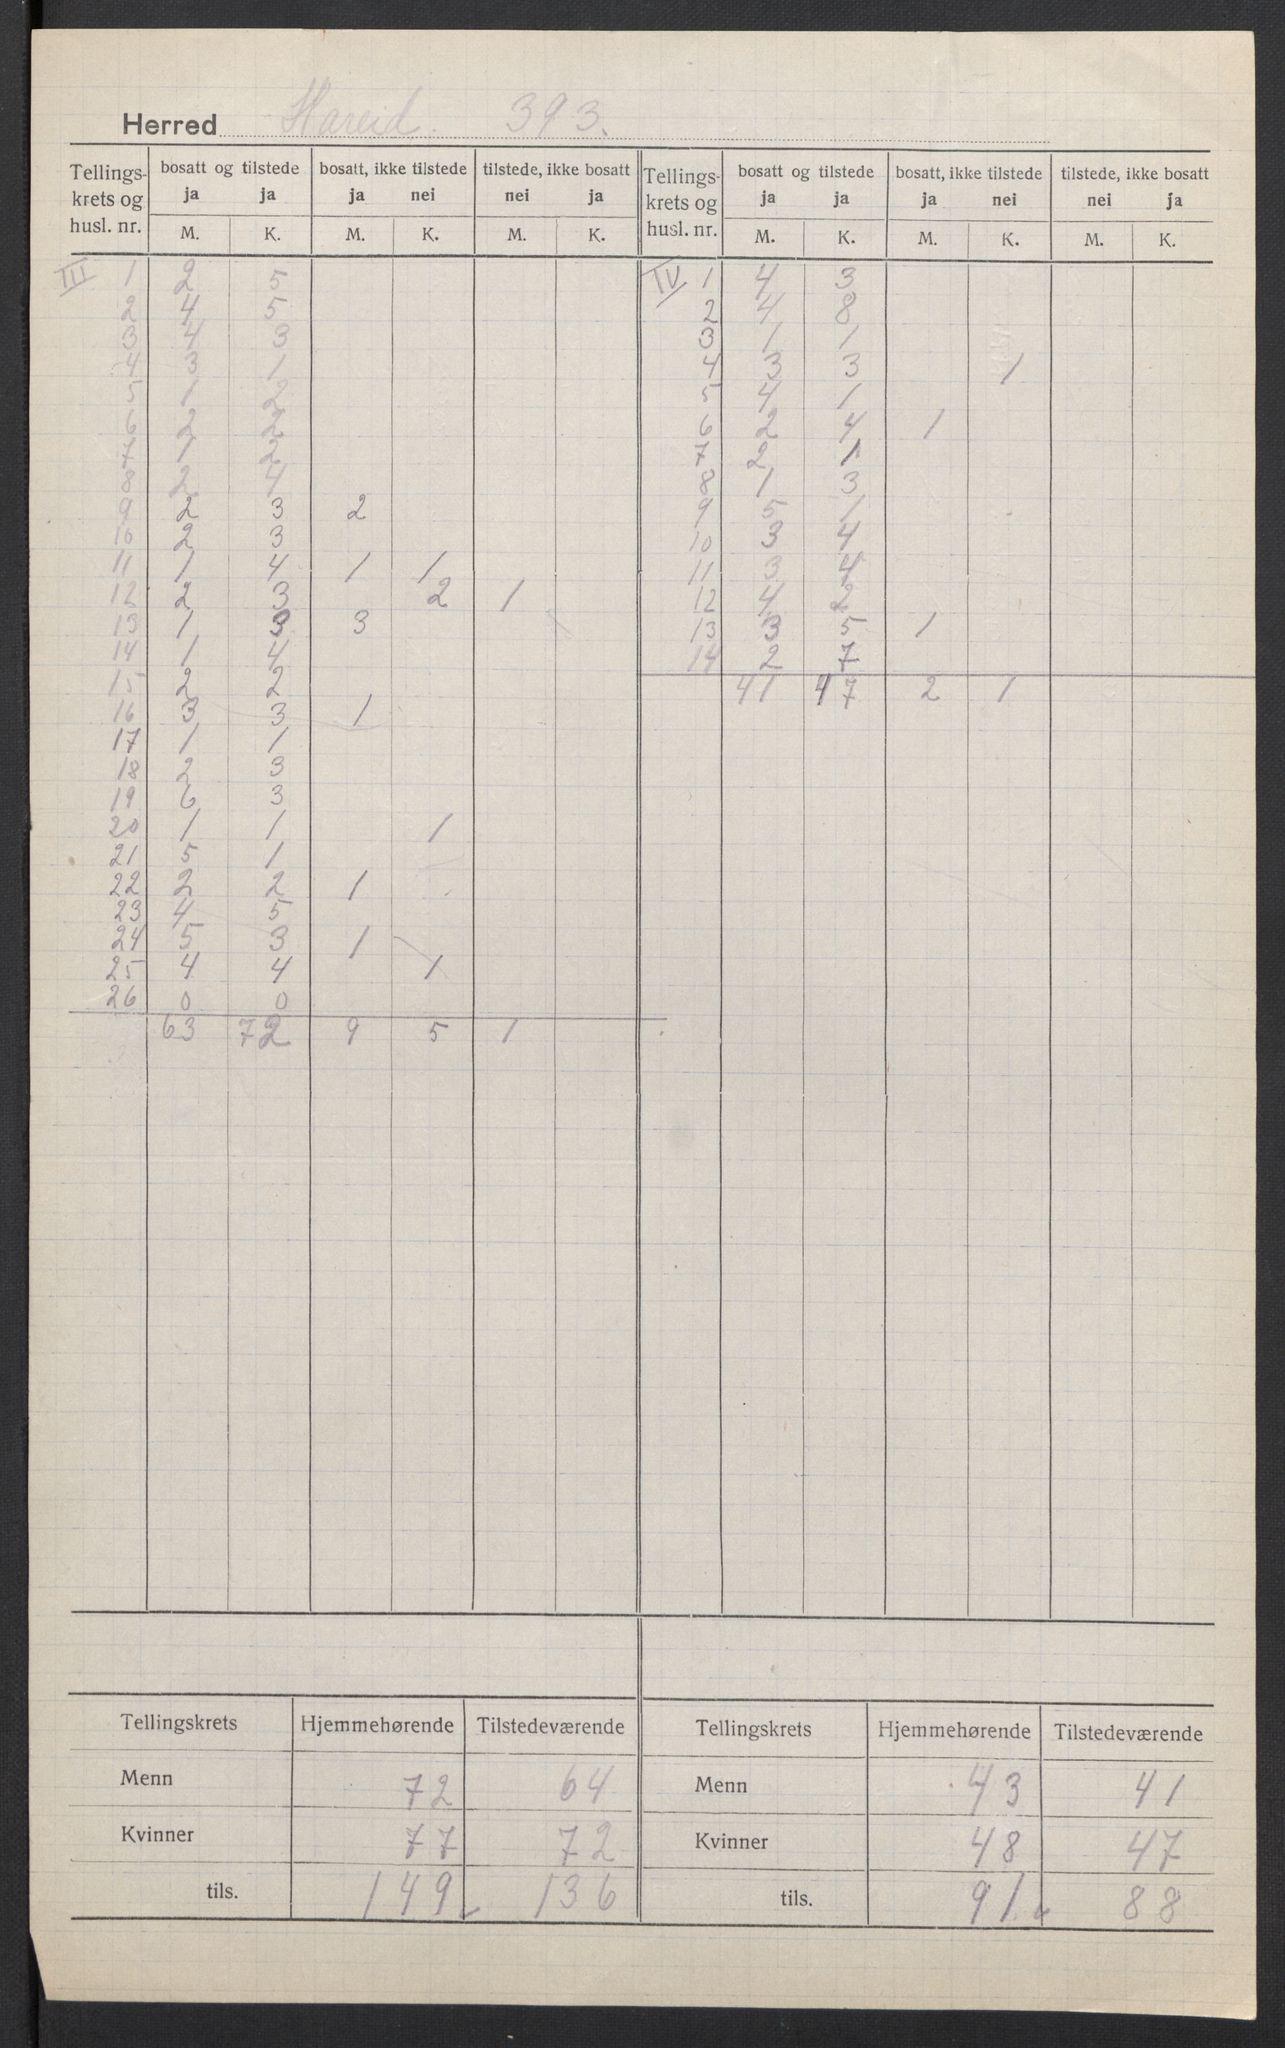 Herred Hareid. 393.
Tellings- krets og husl. nr. | bosatt og tilstede ja ja M. K. | bosatt, ikke tilstede ja nei M. K. | tilstede, ikke bosatt nei ja M. K. | Tellings- krets og husl. nr. | bosatt og tilstede ja ja M. K. | bosatt, ikke tilstede ja nei M. K. | tilstede, ikke bosatt nei ja M. K.
III 1 2 5
2 4 5
3 4 3
4 3 1
5 1 2
6 2 2
7 1 2
8 2 4
9 2 3 2
10 2 3
11 1 4 1 1
12 2 3 2 1
13 1 3 3
14 1 4
15 2 2
16 3 3 1
17 1 1
18 2 3
19 6 3
20 1 1 1
21 5 1
22 2 2 1
23 4 5
24 5 3 1
25 4 4 1
26 0 0
63 72 9 5 1
IV 1 4 3
2 4 8
3 1 1
4 3 3 1
5 4 1
6 2 4 1
7 2 1
8 1 3
9 5 1
10 3 4
11 3 4
12 4 2
13 3 5 1
14 2 7
41 47 2 1
Tellingskrets Hjemmehørende Tilstedeværende
Menn 72 64
Kvinner 77 72
tils. 149 136
Tellingskrets Hjemmehørende Tilstedeværende
Menn 43 41
Kvinner 48 47
tils. 91 88